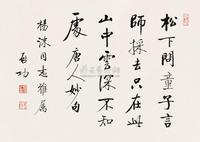 松下問童子言
師採去只在此
山中雲深不知
處 唐人妙句
楊沫同志雅屬
启功